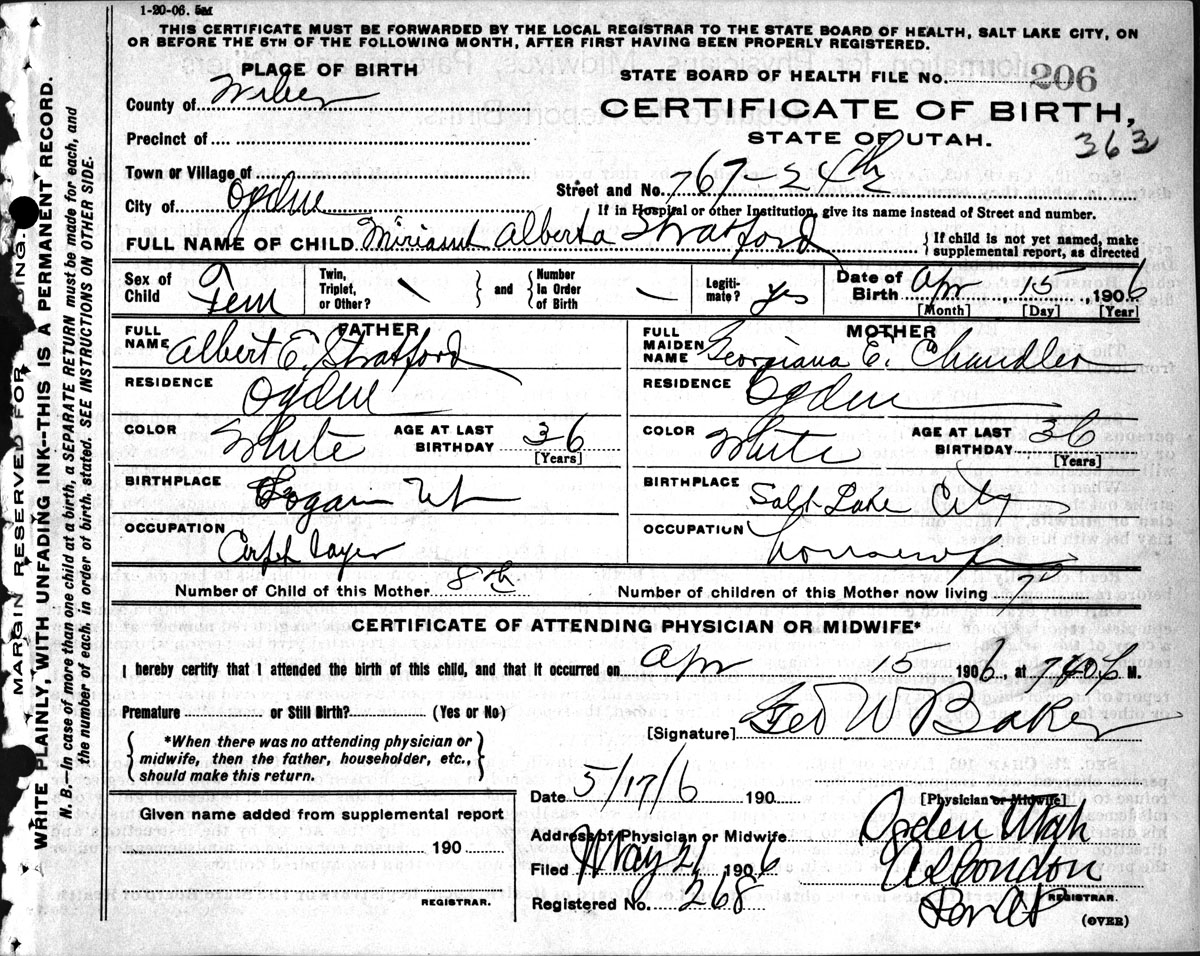 1-20-06. 5M
THIS CERTIFICATE MUST BE FORWARDED BY THE LOCAL REGISTRAR TO THE STATE BOARD OF HEALTH, SALT LAKE CITY, ON
OR BEFORE THE 5TH OF THE FOLLOWING MONTH, AFTER FIRST HAVING BEEN PROPERLY REGISTERED.
MARGIN RESERVED FOR BINDING.
WRITE PLAINLY, WITH UNFADING INK--THIS IS A PERMANENT RECORD.
N. B.—In case of more than one child at a birth, a SEPARATE RETURN must be made for each, and
the number of each, in order of birth, stated. SEE INSTRUCTIONS ON OTHER SIDE.
PLACE OF BIRTH
STATE BOARD OF HEALTH FILE No. 206
County of Weber
CERTIFICATE OF BIRTH,
Precinct of
STATE OF UTAH.
363
Town or Village of
Street and No. 767 - 24th
City of Ogden
If in Hospital or other Institution, give its name instead of Street and number.
FULL NAME OF CHILD Alberta Stratford
{ If child is not yet named, make
supplemental report, as directed
Sex of Child Fem
Twin, Triplet, or Other?
and
Number in Order of Birth
Legitimate? yes
Date of Birth Apr 15 1906
[Month] [Day] [Year]
FATHER
MOTHER
FULL NAME Albert E. Stratford
FULL MAIDEN NAME Georgiana E. Chandler
RESIDENCE Ogden
RESIDENCE Ogden
COLOR White AGE AT LAST BIRTHDAY 36 [Years]
COLOR White AGE AT LAST BIRTHDAY 36 [Years]
BIRTHPLACE Logan Ut
BIRTHPLACE Salt Lake City
OCCUPATION Carpet Layer
OCCUPATION Housewife
Number of Child of this Mother 8th
Number of children of this Mother now living 7
CERTIFICATE OF ATTENDING PHYSICIAN OR MIDWIFE*
I hereby certify that I attended the birth of this child, and that it occurred on Apr 15 1906, at M.
Premature or Still Birth? (Yes or No)
[Signature] Geo W Baker
*When there was no attending physician or
midwife, then the father, householder, etc.,
should make this return.
Date 5/17/6 190
[Physician or Midwife]
Given name added from supplemental report
Address of Physician or Midwife Ogden Utah
190
Filed May 21 1906
A S Condon
REGISTRAR.
Registered No. 268
REGISTRAR.
Per
(OVER)